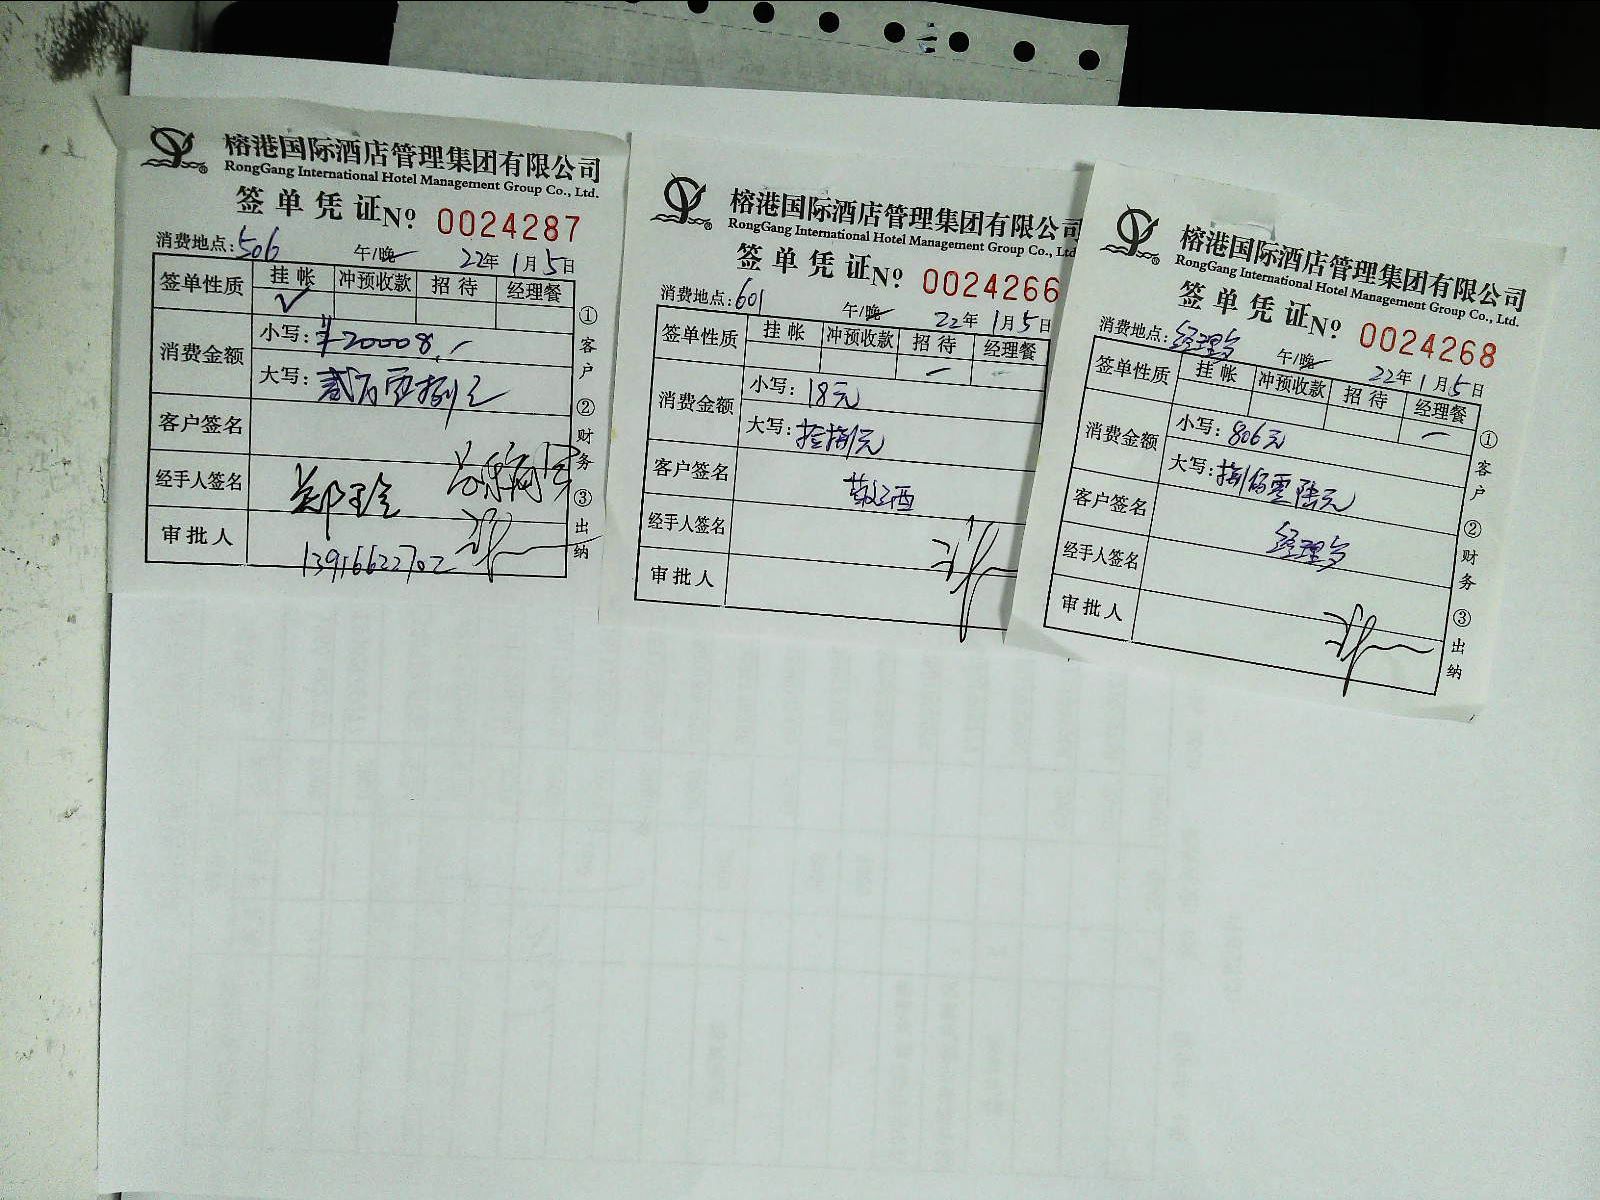 榕港国际酒店管理集团有限公司
RongGang International Hotel Management Group Co., Ltd.
签单凭证 Nº: 0024287
消费地点:506 午/晚 22年1月5日
签单性质 挂帐 冲预收款 招待 经理餐
✓
消费金额 小写:¥20008.-
大写:贰万零捌元
客户签名
经手人签名 郑
审批人 13916622702
①客户 ②财务 ③出纳
榕港国际酒店管理集团有限公司
RongGang International Hotel Management Group Co., Ltd.
签单凭证 Nº: 0024266
消费地点:601 午/晚 22年1月5日
签单性质 挂帐 冲预收款 招待 经理餐
消费金额 小写:18元
大写:拾捌元
客户签名
经手人签名
审批人
榕港国际酒店管理集团有限公司
RongGang International Hotel Management Group Co., Ltd.
签单凭证 Nº: 0024268
消费地点:经理 午/晚 22年1月5日
签单性质 挂帐 冲预收款 招待 经理餐
消费金额 小写:806元
大写:捌佰零陆元
客户签名
经手人签名 经理
审批人
①客户 ②财务 ③出纳